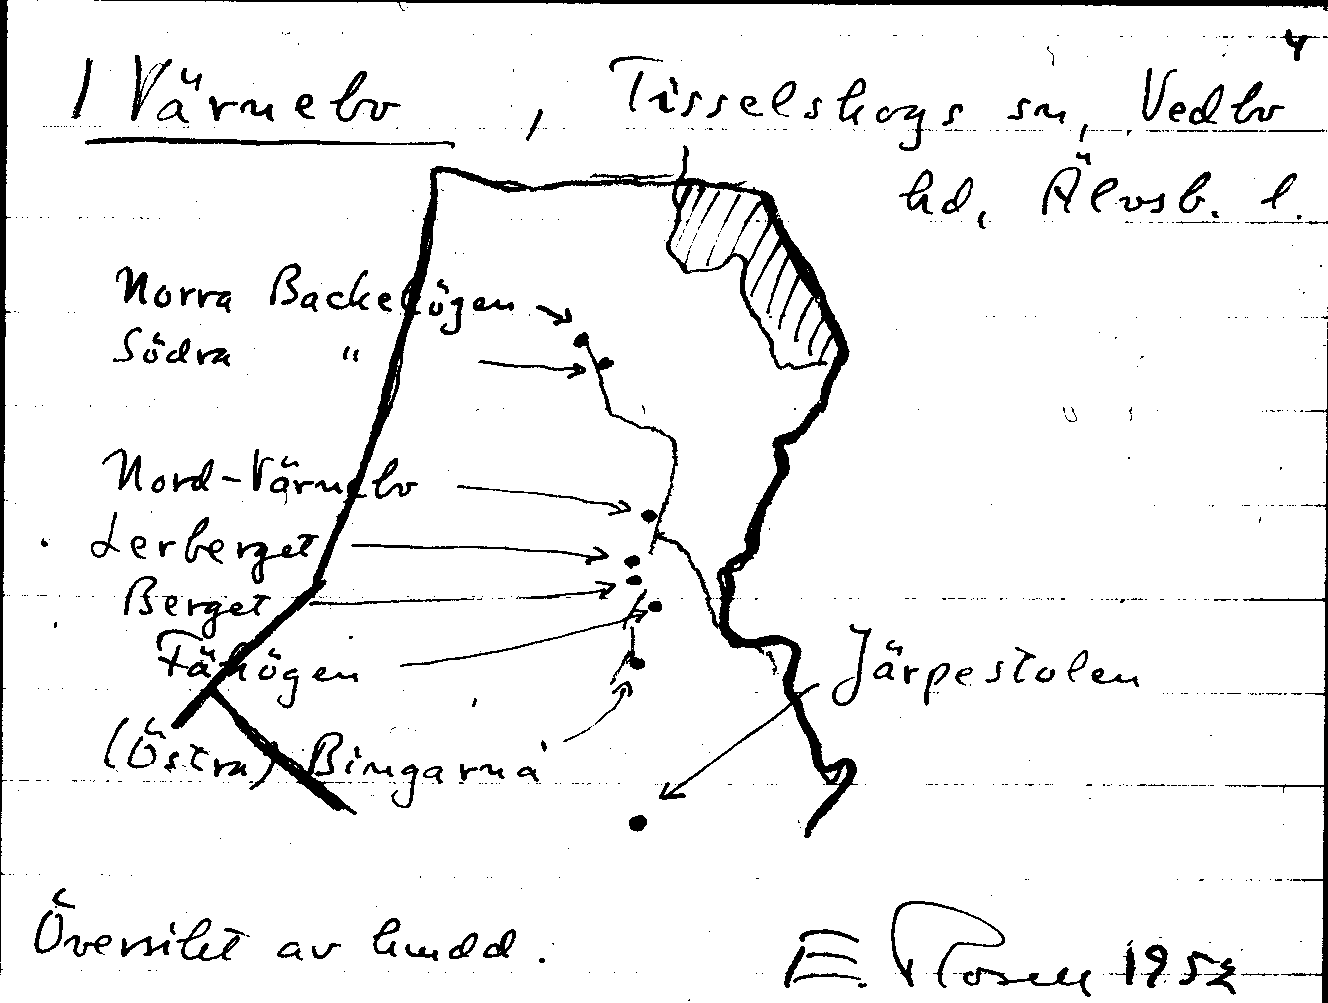 4
1 Värnebo, Tisselskogs sn, Vedbo
hd, Älvsb. l.
Norra Backehögen
Södra "
Nord-Värnebo
Lerberget
Berget
Fähögen
Järpestolen
(Östra) Bingarna
Översikt av hmdd.
E. Rosell 1952